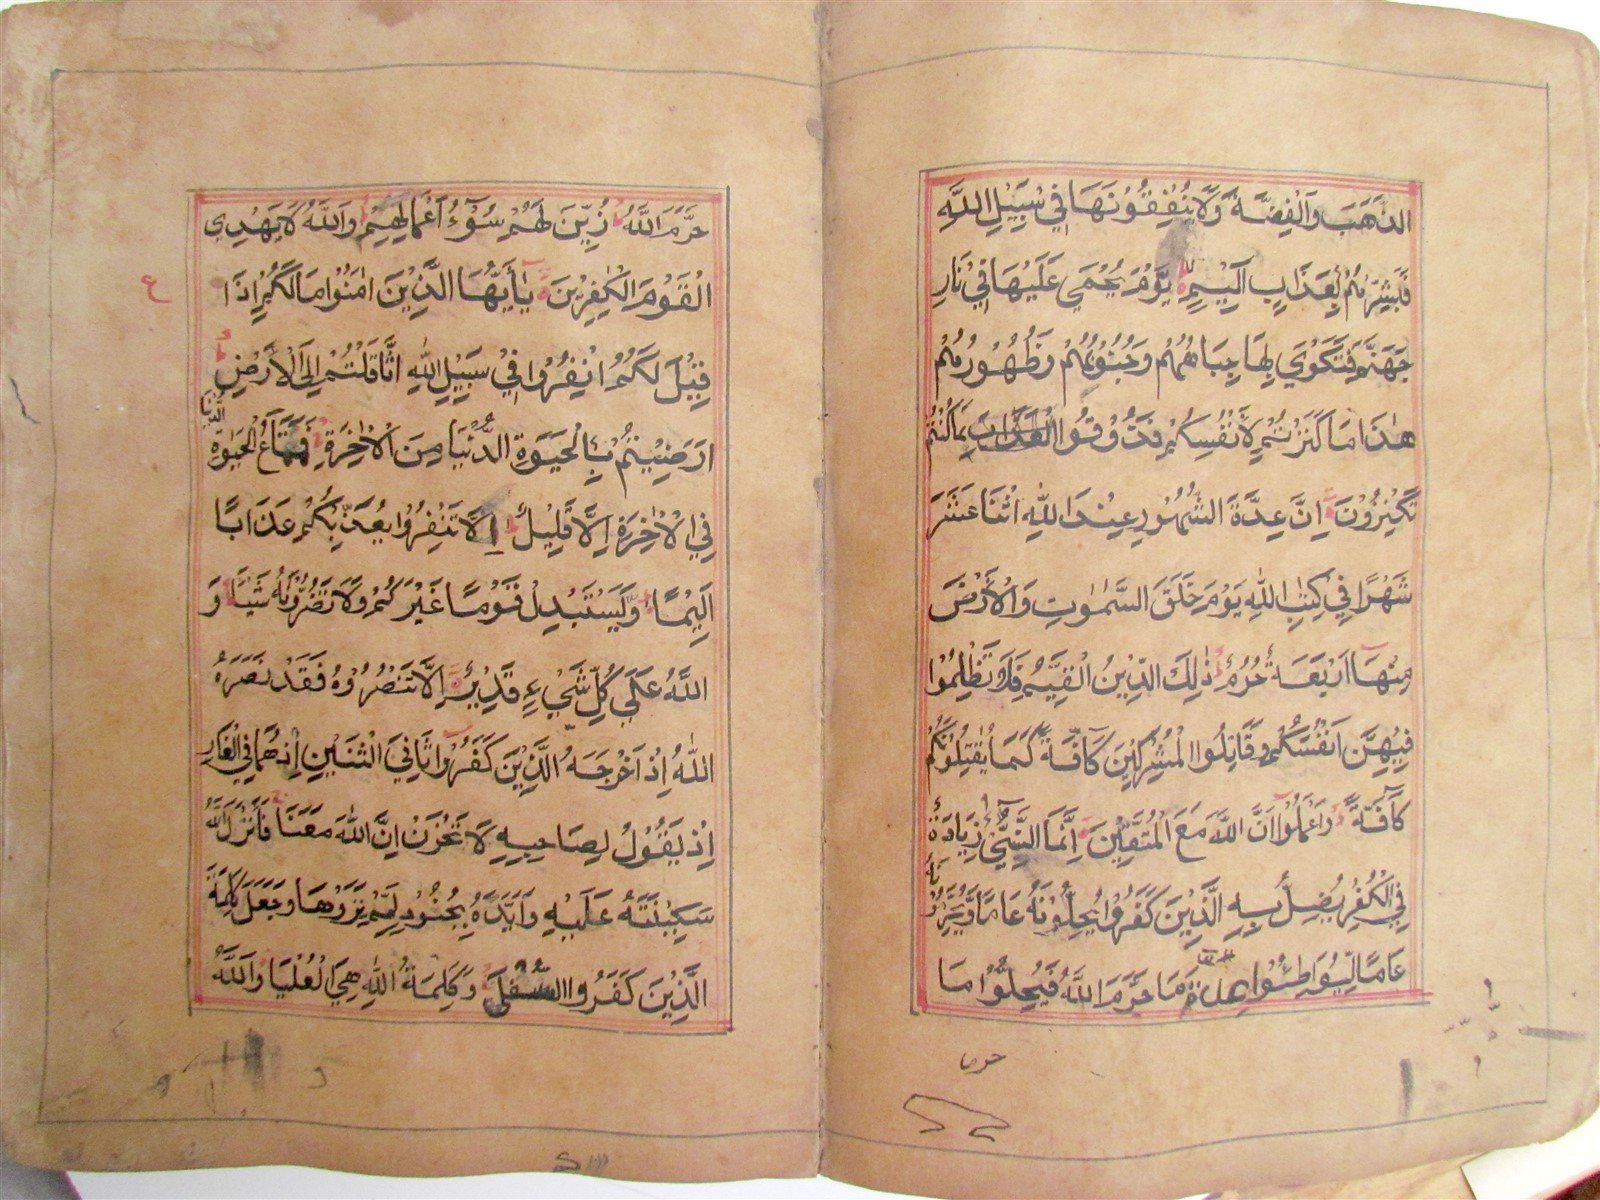 الذَّهَبَ وَالْفِضَّةَ وَلَا يُنْفِقُونَهَا فِي سَبِيلِ اللَّهِ
فَبَشِّرْهُمْ بِعَذَابٍ أَلِيمٍ يَوْمَ يُحْمَى عَلَيْهَا فِي نَارِ
جَهَنَّمَ فَتُكْوَى بِهَا جِبَاهُهُمْ وَجُنُوبُهُمْ وَظُهُورُهُمْ
هٰذَا مَا كَنَزْتُمْ لِأَنْفُسِكُمْ فَذُوقُوا الْعَذَابَ بِمَا كُنْتُمْ
تَكْنِزُونَ إِنَّ عِدَّةَ الشُّهُورِ عِنْدَ اللَّهِ اثْنَا عَشَرَ
شَهْرًا فِي كِتٰبِ اللَّهِ يَوْمَ خَلَقَ السَّمٰوٰتِ وَالْأَرْضَ
مِنْهَا أَرْبَعَةٌ حُرُمٌ ذٰلِكَ الدِّينُ الْقَيِّمُ فَلَا تَظْلِمُوا
فِيهِنَّ أَنْفُسَكُمْ وَقَاتِلُوا الْمُشْرِكِينَ كَافَّةً كَمَا يُقٰتِلُونَكُمْ
كَافَّةً وَاعْلَمُوا أَنَّ اللَّهَ مَعَ الْمُتَّقِينَ إِنَّمَا النَّسِيءُ زِيَادَةٌ
فِي الْكُفْرِ يُضَلُّ بِهِ الَّذِينَ كَفَرُوا يُحِلُّونَهُ عَامًا وَيُحَرِّمُونَهُ
عَامًا لِيُوَاطِئُوا عِدَّةَ مَا حَرَّمَ اللَّهُ فَيُحِلُّوا مَا
حرم
حَرَّمَ اللَّهُ زُيِّنَ لَهُمْ سُوءُ أَعْمَالِهِمْ وَاللَّهُ لَا يَهْدِي
الْقَوْمَ الْكٰفِرِينَ يٰأَيُّهَا الَّذِينَ اٰمَنُوا مَا لَكُمْ إِذَا
ع
قِيلَ لَكُمُ انْفِرُوا فِي سَبِيلِ اللَّهِ اثَّاقَلْتُمْ إِلَى الْأَرْضِ
أَرَضِيتُمْ بِالْحَيٰوةِ الدُّنْيَا مِنَ الْاٰخِرَةِ فَمَا مَتَاعُ الْحَيٰوةِ الدُّنْيَا
فِي الْاٰخِرَةِ إِلَّا قَلِيلٌ إِلَّا تَنْفِرُوا يُعَذِّبْكُمْ عَذَابًا
أَلِيمًا وَيَسْتَبْدِلْ قَوْمًا غَيْرَكُمْ وَلَا تَضُرُّوهُ شَيْئًا وَ
اللَّهُ عَلٰى كُلِّ شَيْءٍ قَدِيرٌ إِلَّا تَنْصُرُوهُ فَقَدْ نَصَرَهُ
اللَّهُ إِذْ أَخْرَجَهُ الَّذِينَ كَفَرُوا ثَانِيَ اثْنَيْنِ إِذْ هُمَا فِي الْغَارِ
إِذْ يَقُولُ لِصَاحِبِهِ لَا تَحْزَنْ إِنَّ اللَّهَ مَعَنَا فَأَنْزَلَ اللَّهُ
سَكِينَتَهُ عَلَيْهِ وَأَيَّدَهُ بِجُنُودٍ لَمْ تَرَوْهَا وَجَعَلَ كَلِمَةَ
الَّذِينَ كَفَرُوا السُّفْلٰى وَكَلِمَةُ اللَّهِ هِيَ الْعُلْيَا وَاللَّهُ